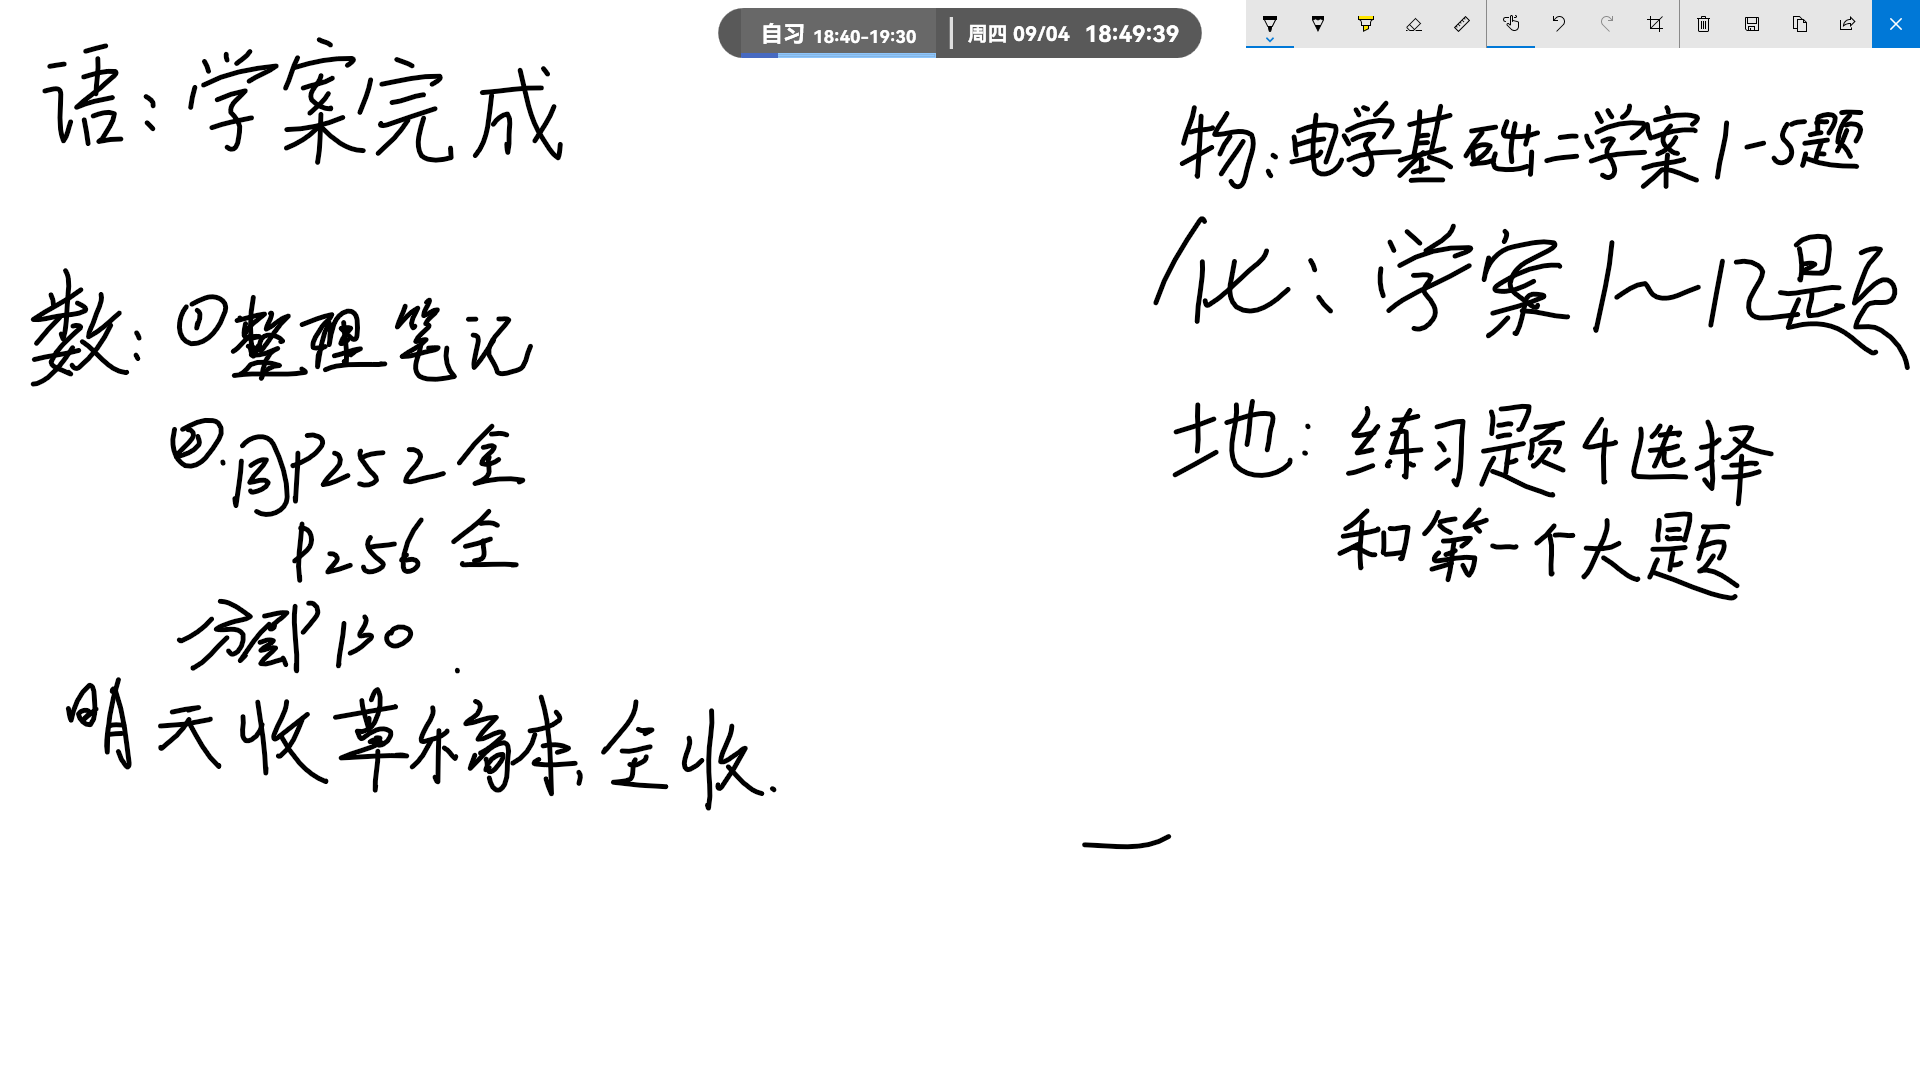 自习 18:40-19:30 周四 09/04 18:49:39
语:学案完成
数:①整理笔记
②.同P252全
P256全
分层P130.
明天收草稿本,全收.
物:电学基础二学案1-5题
化:学案1~12题
地:练习题4选择
和第一个大题